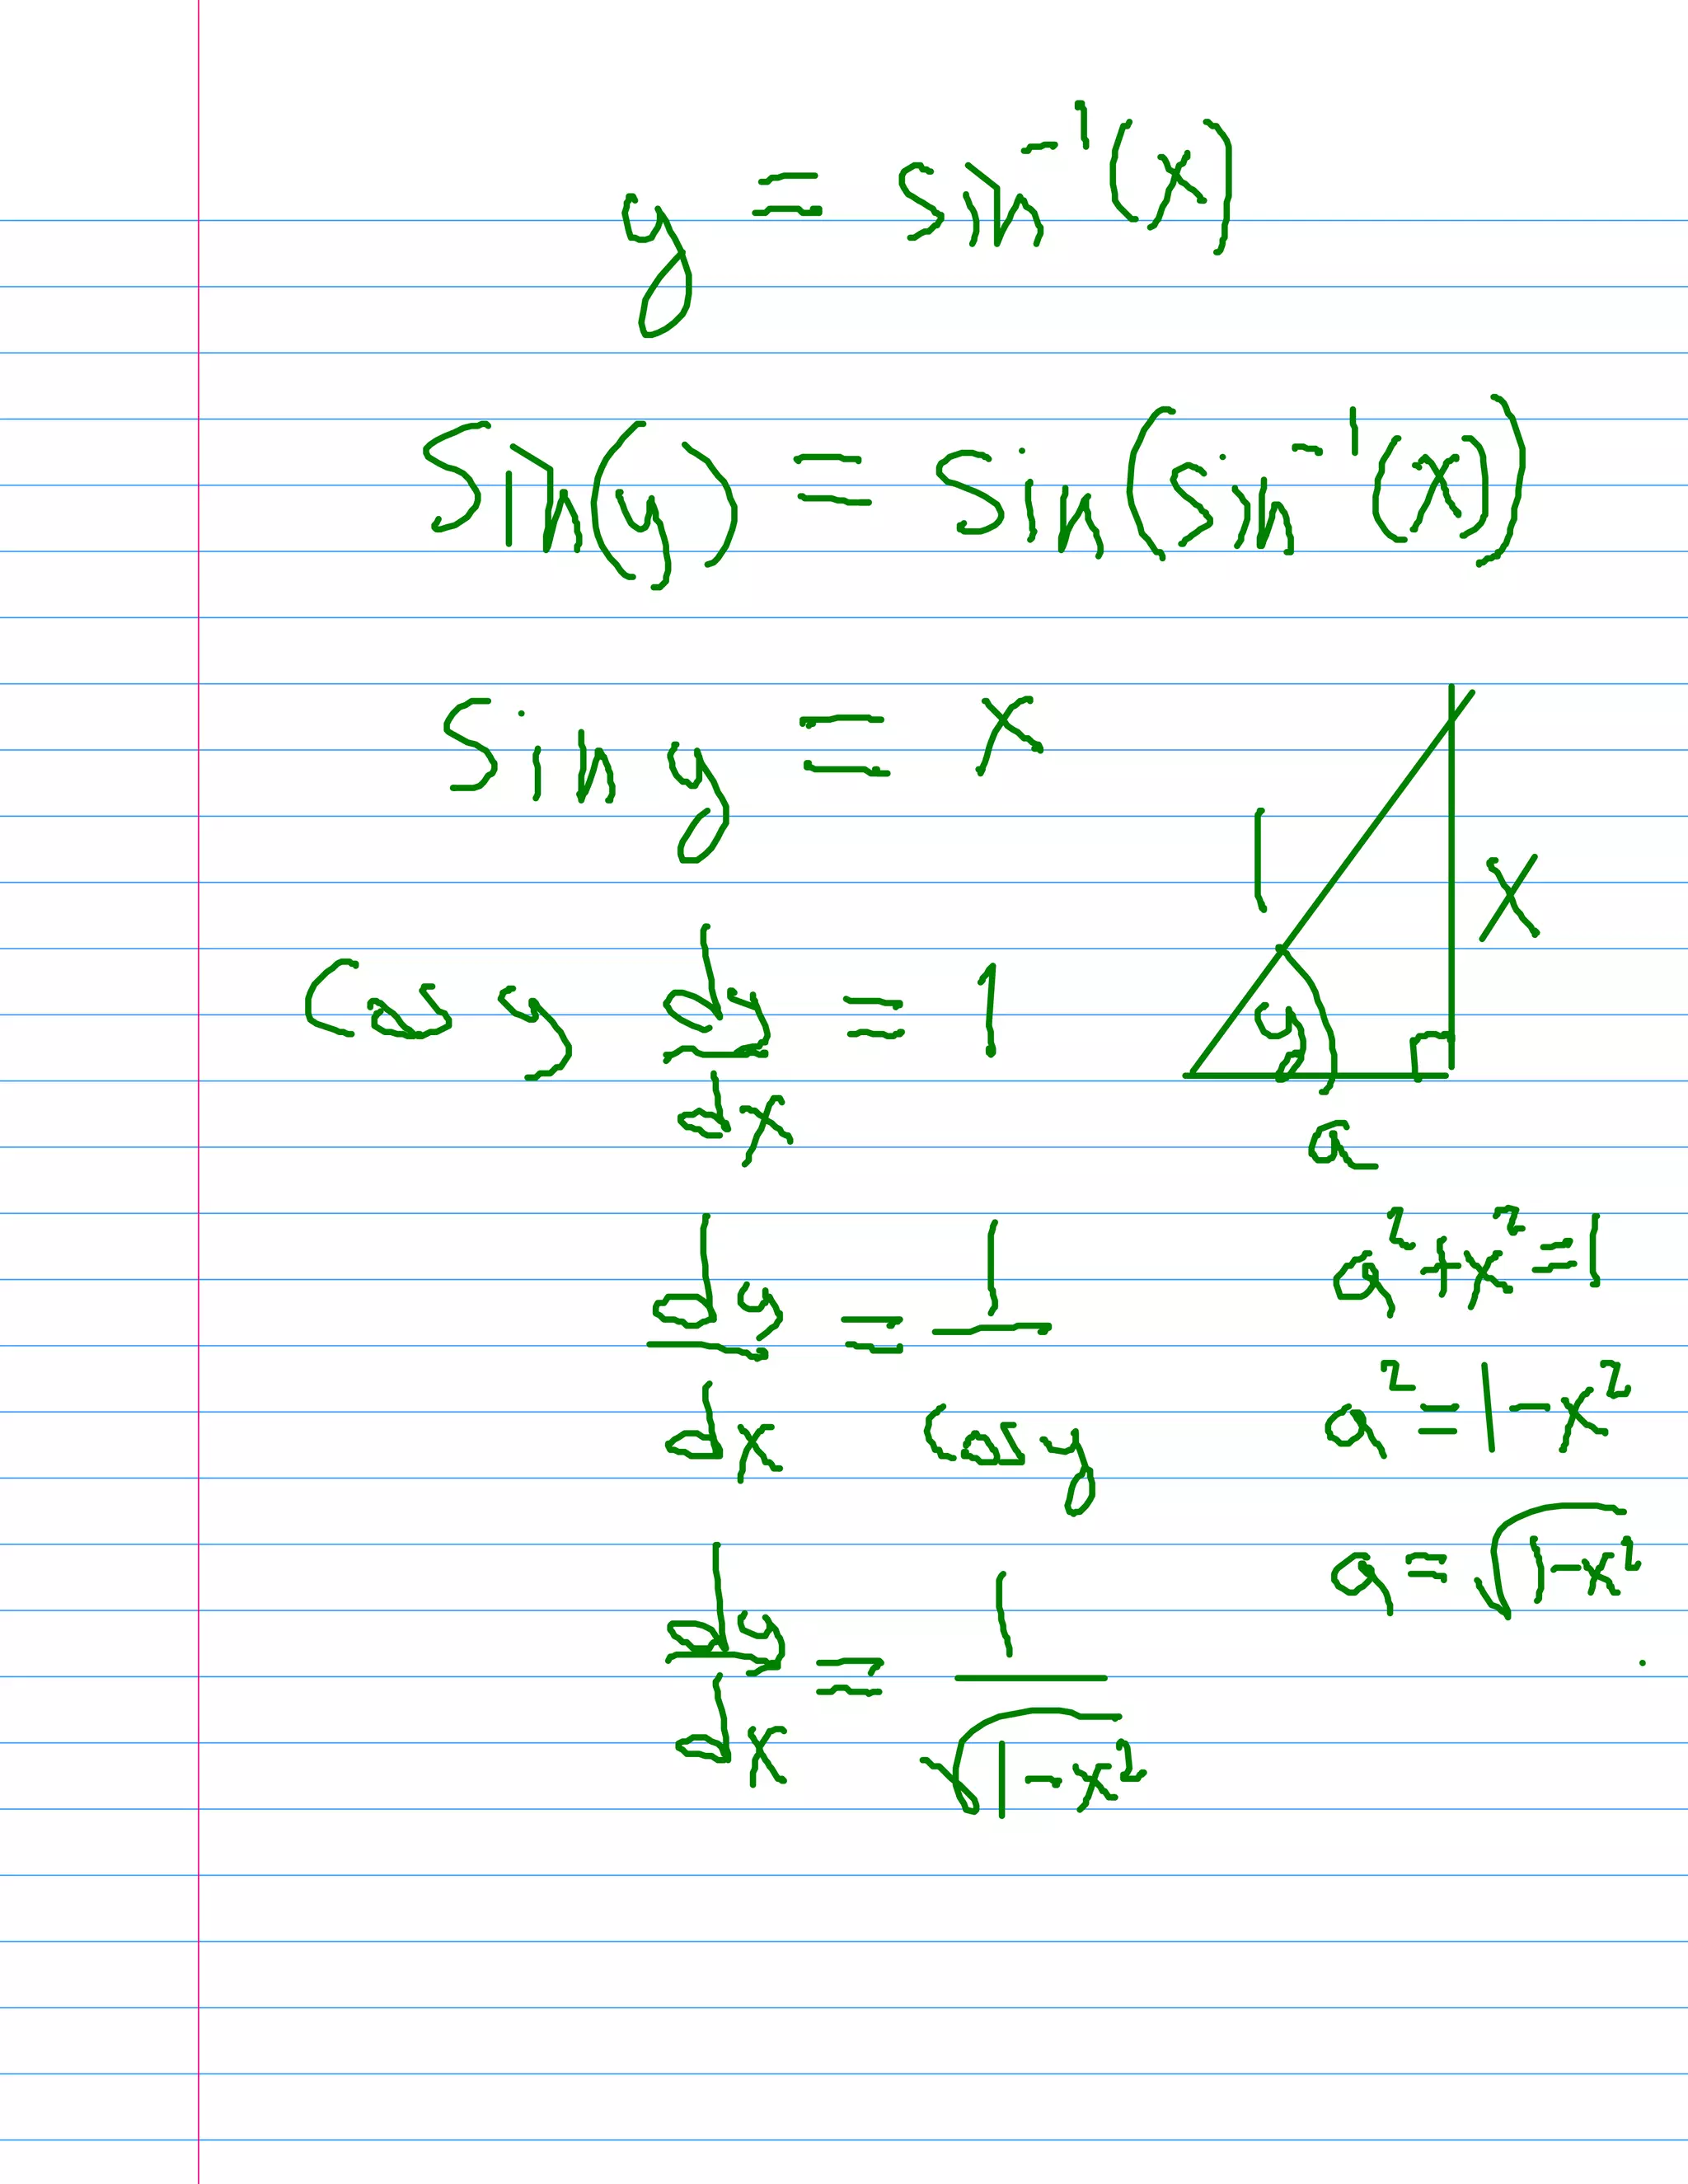 y = sin⁻¹(x)
sin(y) = sin(sin⁻¹(x))
sin y = x
1
x
cos y dy/dx = 1
y
a
dy/dx = 1/cos y
a² + x² = 1
a² = 1 - x²
a = √(1-x²)
dy/dx = 1/√(1-x²)